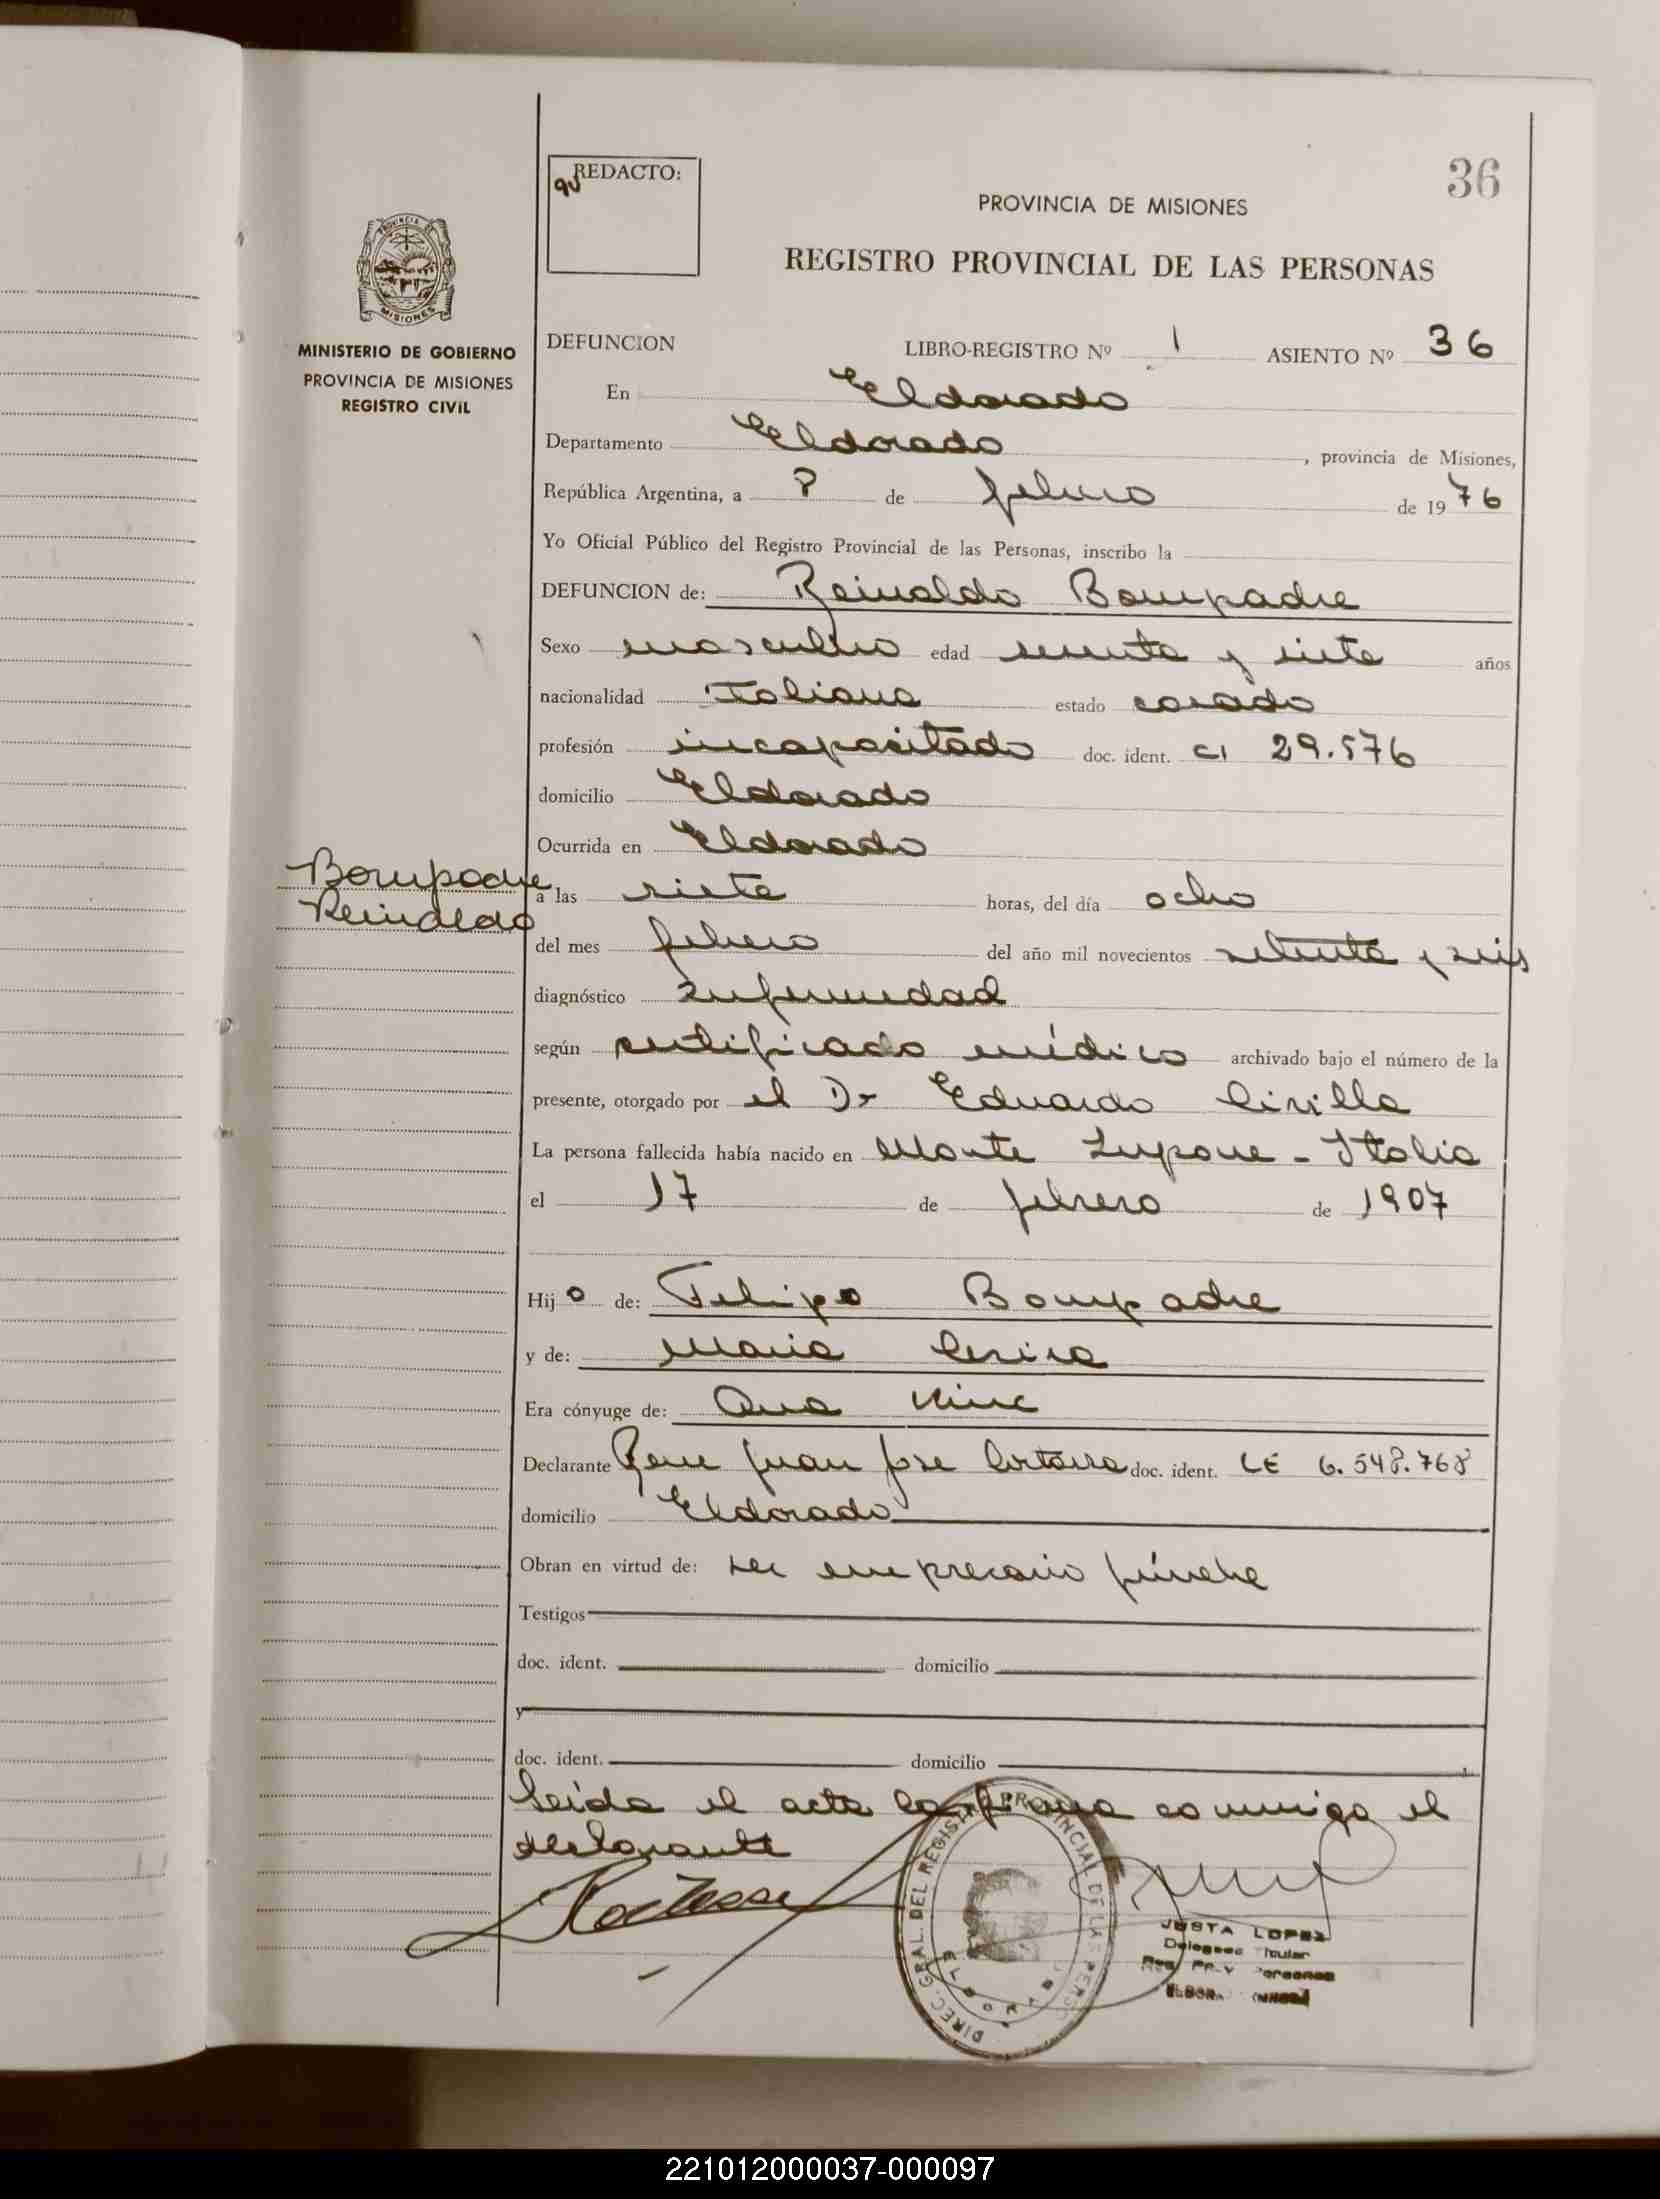 REDACTO:
36
PROVINCIA DE MISIONES
REGISTRO PROVINCIAL DE LAS PERSONAS
MISIONES
MINISTERIO DE GOBIERNO
PROVINCIA DE MISIONES
REGISTRO CIVIL
DEFUNCION LIBRO-REGISTRO Nº 1 ASIENTO Nº 36
En Eldorado
Departamento Eldorado, provincia de Misiones,
República Argentina, a 8 de febrero de 1976
Yo Oficial Público del Registro Provincial de las Personas, inscribo la
DEFUNCION de: Reinaldo Bompadre
Sexo masculino edad sesenta y siete años
nacionalidad Italiana estado casado
profesión incapacitado doc. ident. CI 29.576
domicilio Eldorado
Ocurrida en Eldorado
Bompadre
Reinaldo
a las siete horas, del día ocho
del mes febrero del año mil novecientos setenta y seis
diagnóstico enfermedad
según certificado médico archivado bajo el número de la
presente, otorgado por el Dr Eduardo Cirilla
La persona fallecida había nacido en Monte Lupone - Italia
el 17 de febrero de 1907
Hijo de: Felipo Bompadre
y de: Maria
Era cónyuge de: Ana
Declarante Rene Juan Jose doc. ident. LE 6.548.768
domicilio Eldorado
Obran en virtud de: ser empresario fúnebre
Testigos
doc. ident. domicilio
y
doc. ident. domicilio
Leida el acta la firma conmigo el
declarante
DIREC. GRAL. DEL REGISTRO PROVINCIAL DE LAS PERS.
JUSTA LOPEZ